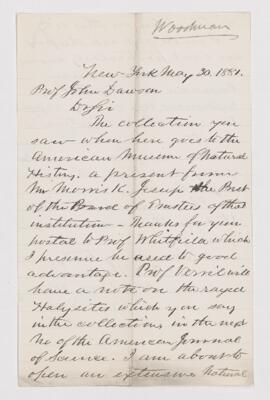 Woodman
New-York May 20. 1881.
Prof John Dawson
Dr Sir
The collection you
saw when here goes to the
American Museum of Natural
History, a present from
Mr Morris K. Jesup the Prest
of the Board of Trustees of that
institution – Thanks for your
postal to Prof Whitfield which
I presume he used to good
advantage. Prof Verrill will
have a note on the
Halysites which you say
in the collections in the next
No of the American Journal
of Science. I am about to
open an extensive Natural